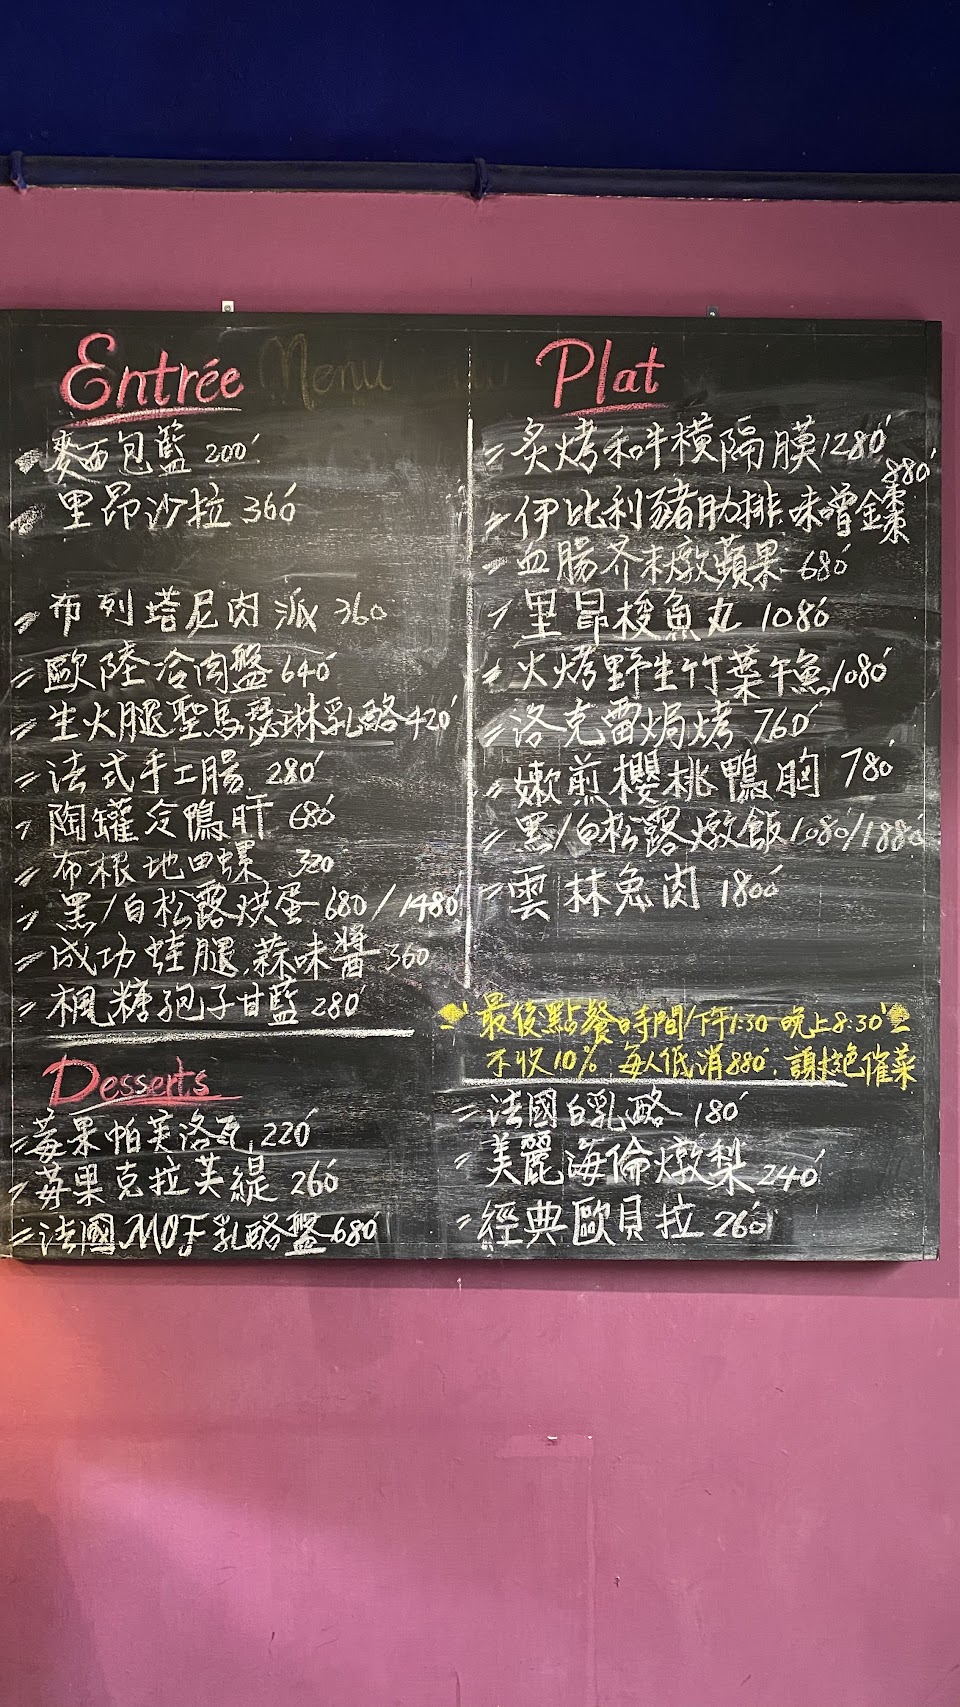 Entrée
Menu
麥面包籃 200
里昂沙拉 360
布列塔尼肉派 360
歐陸冷肉盤 640
生火腿聖馬瑟琳乳酪 420
法式手工腸 280
陶罐冷鴨肝 680
布根地田螺 320
黑/白松露烘蛋 680/1480
成功蛙腿,蒜味醬 360
楓糖孢子甘藍 280
Desserts
莓果帕芙洛瓦 220
莓果克拉芙緹 260
法國MOF乳酪盤 680
Plat
炙烤和牛橫隔膜 1280
伊比利豬肋排.味噌金棗 880
血腸芥末燉蘋果 680
里昂梭魚丸 1080
火烤野生竹葉午魚 1080
洛克雷焗烤 760
嫩煎櫻桃鴨胸 780
黑/白松露燉飯 1080/1880
雲林兔肉 1800
最後點餐時間/下午1:30 晚上8:30
不收10%.每人低消880.請拒絕催菜
法國白乳酪 180
美麗海倫燉梨 240
經典歐貝拉 260